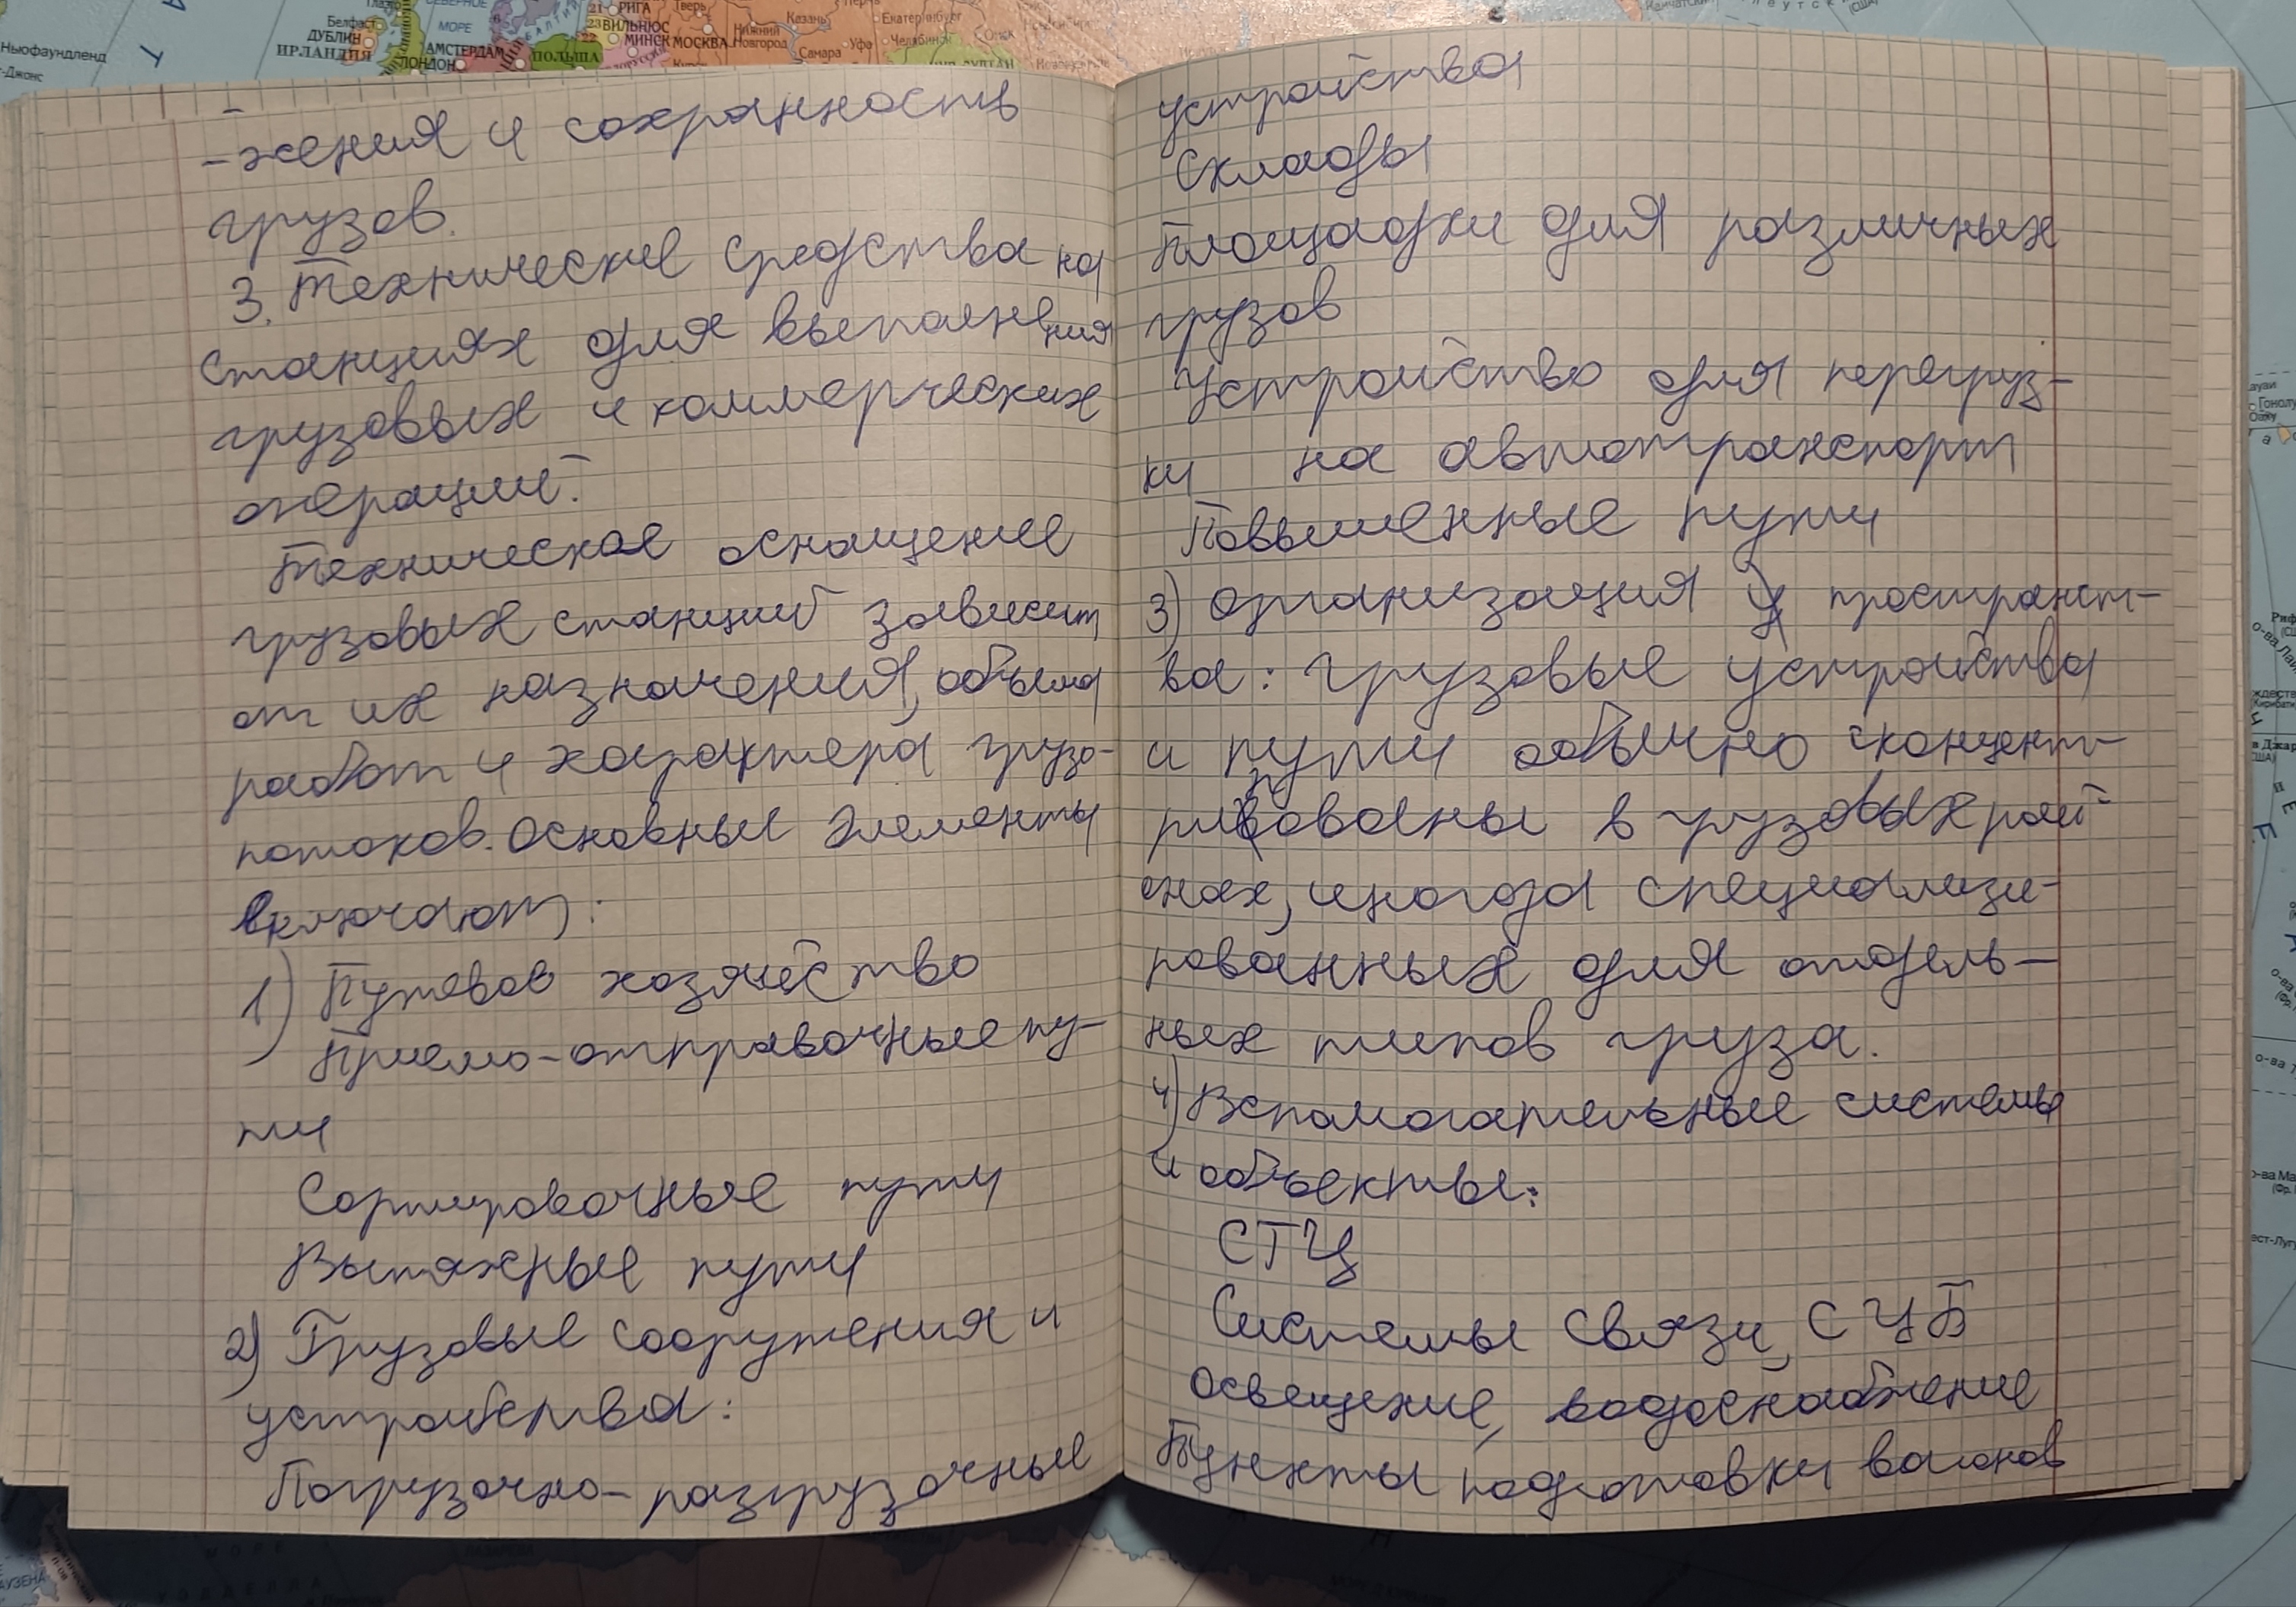 Ньюфаундленд
-Джонс
Белфаст
ДУБЛИН
ИРЛАНДИЯ
СЕВЕРНОЕ
МОРЕ
АМСТЕРДАМ
ЛОНДОН
ПОЛЬША
РИГА
ВИЛЬНЮС
МИНСК
Тверь
МОСКВА
Нижний
Новгород
Казань
Самара
Уфа
Екатеринбург
Челябинск
Омск
-жения и сохранность
грузов.
3. Технические средства на
станциях для выполнения
грузовых и коммерческих
операций.
Техническое оснащение
грузовых станций зависит
от их назначения, объёма
работ и характера грузо-
потоков. Основные элементы
включают:
1) Путевое хозяйство
Приемо-отправочные пу-
ти
Сортировочные пути
Вытяжные пути
2) Грузовые сооружения и
устройства:
Погрузочно-разгрузочные
устройства
Склады
Площадки для различных
грузов
Устройство для перегруз-
ки на автотранспорт
Повышенные пути
3) Организация пространст-
ва: грузовые устройства
и пути обычно сконцент-
рированы в грузовых рай-
онах, иногда специализи-
рованных для отдель-
ных типов груза.
4) Вспомогательные системы
и объекты:
СТЦ
Системы связи, СЦБ
освещение, водоснабжение
Пункты подготовки вагонов